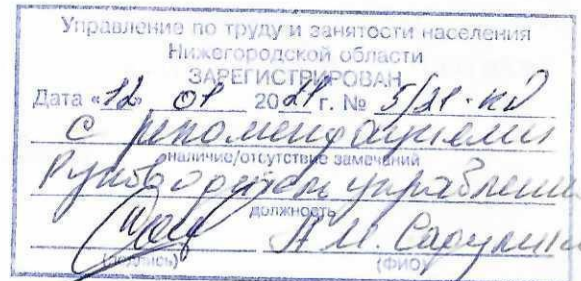 Управление по труду и занятости населения
Нижегородской области
ЗАРЕГИСТРИРОВАН
Дата «12» 01 2021 г. № 5/21-КД
с рекомендациями
наличие/отсутствие замечаний
Руководитель управления
должность
(подпись) (ФИО)
А.М.